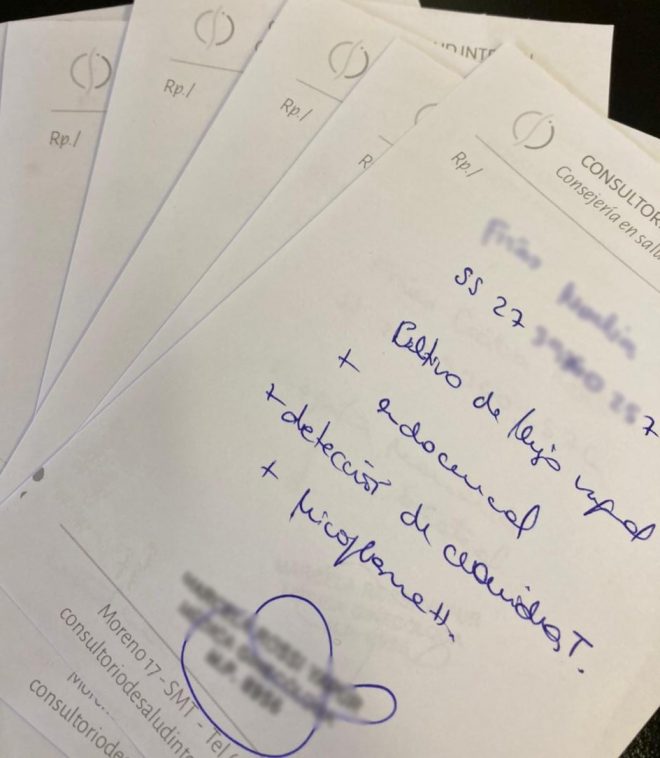 UD INTE
Rp./
Rp./
Rp./
R
Rp./
CONSULTOR
Consejería en salu
SS 27
7
Cultivo de flujo vaginal
+ endocervical
+ detección de clamidia T.
+ Micoplasma H.
Moreno 17 - SMT - Tel
consultoriodesaludinte
consultoriode